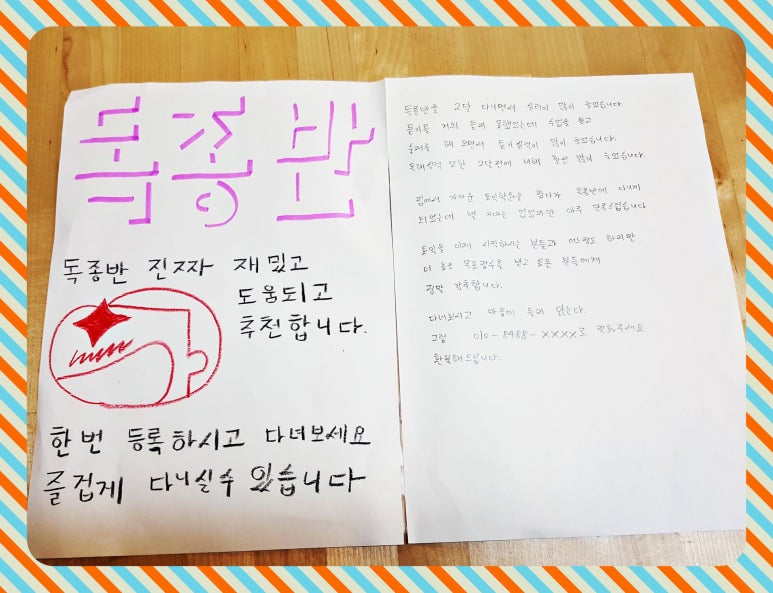 독종반
독종반 진짜 재밌고
도움되고
추천합니다.
한번 등록하시고 다녀보세요
즐겁게 다니실수 있습니다
독종반을 2달 다니면서 실력이 많이 늘었습니다
듣기를 거의 듣지 못했었는데 수업을 듣고
숙제를 해 오면서 듣기실력이 많이 늘었습니다.
독해실력 또한 2달전에 비해 훨씬 많이 늘었습니다.
집에서 가까운 토익학원을 찾다가 독종반에 다니게
되었는데 별 기대는 없었지만 아주 만족스럽습니다
토익을 이제 시작하시는 분들과 어느정도 하지만
더 높은 목표점수를 낳고 싶은 분들에게
정말 강추합니다.
다녀보시고 마음에 들지 않는다.
그럼 010-8488-XXXX로 전화주세요
환불해드립니다.